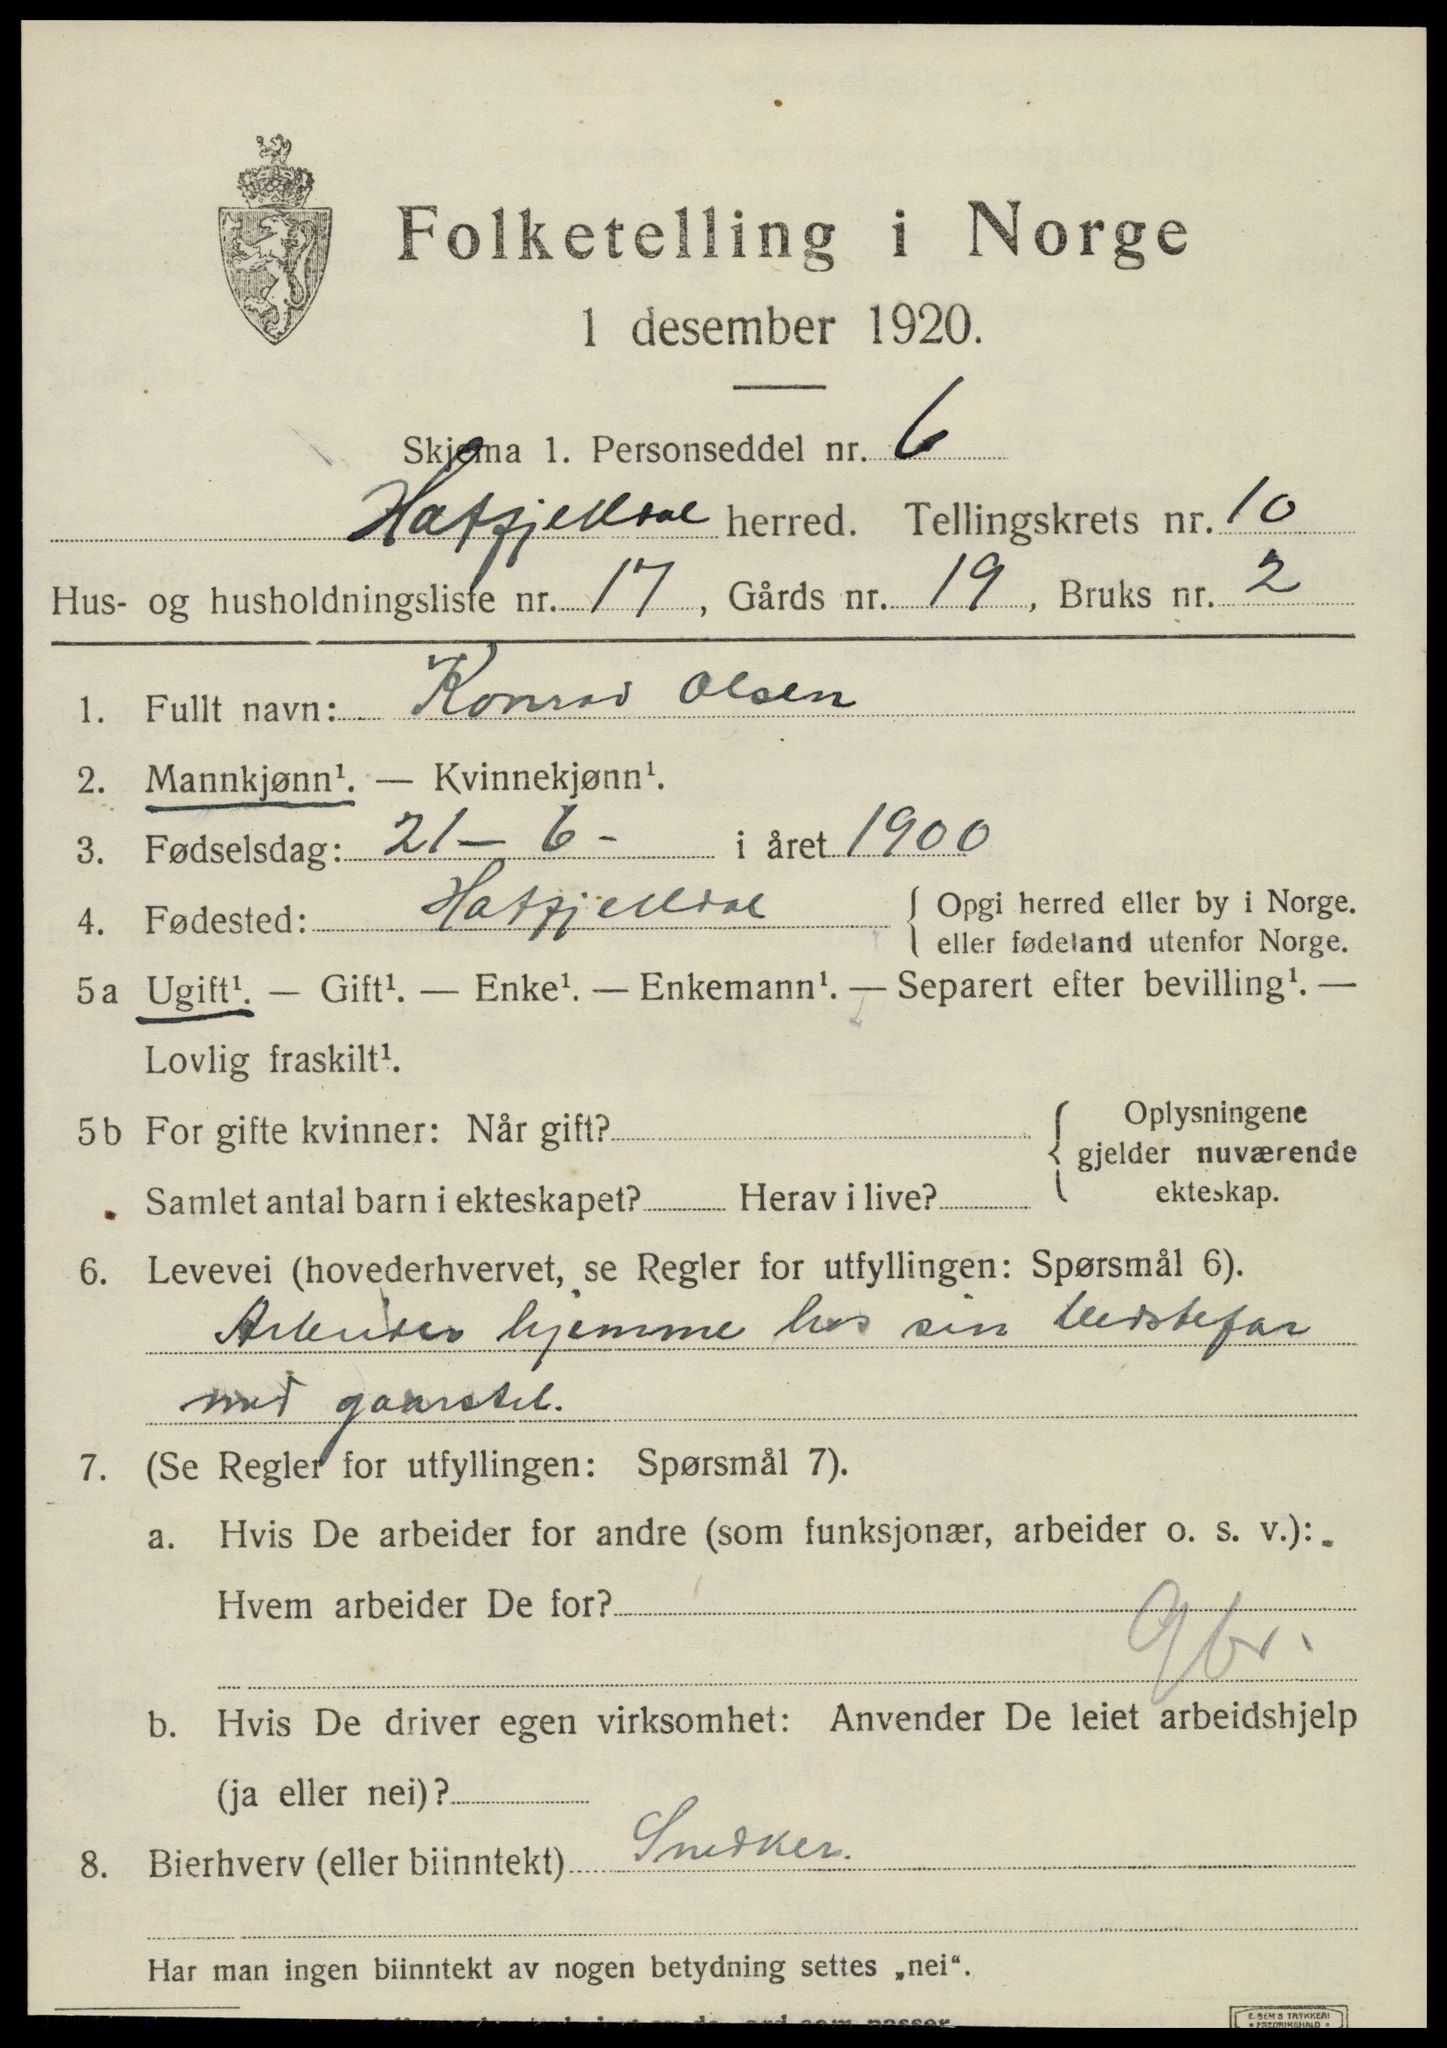 Folketelling i Norge
1 desember 1920.
Skjema 1. Personseddel nr. 6
Hatfjelldal herred. Tellingskrets nr. 10
Hus- og husholdningsliste nr. 17, Gårds nr. 19, Bruks nr. 2
1. Fullt navn: Konrad Olsen
2. Mannkjønn¹. — Kvinnekjønn¹.
3. Fødselsdag: 21 - 6 - i året 1900
4. Fødested: Hatfjelldal { Opgi herred eller by i Norge.
eller fødeland utenfor Norge.
5a Ugift¹. — Gift¹. — Enke¹. — Enkemann¹. — Separert efter bevilling¹. —
Lovlig fraskilt¹.
5b For gifte kvinner: Når gift? { Oplysningene
gjelder nuværende
ekteskap.
Samlet antal barn i ekteskapet? Herav i live?
6. Levevei (hovederhvervet, se Regler for utfyllingen: Spørsmål 6).
Arbeider hjemme hos sin bedstefar
med gaarstel.
7. (Se Regler for utfyllingen: Spørsmål 7).
a. Hvis De arbeider for andre (som funksjonær, arbeider o. s. v.):
Hvem arbeider De for?
Gbr.
b. Hvis De driver egen virksomhet: Anvender De leiet arbeidshjelp
(ja eller nei)?
8. Bierhverv (eller biinntekt) Snedker.
Har man ingen biinntekt av nogen betydning settes „nei“.
E. SEM'S TRYKKERI
FREDRIKSHALD